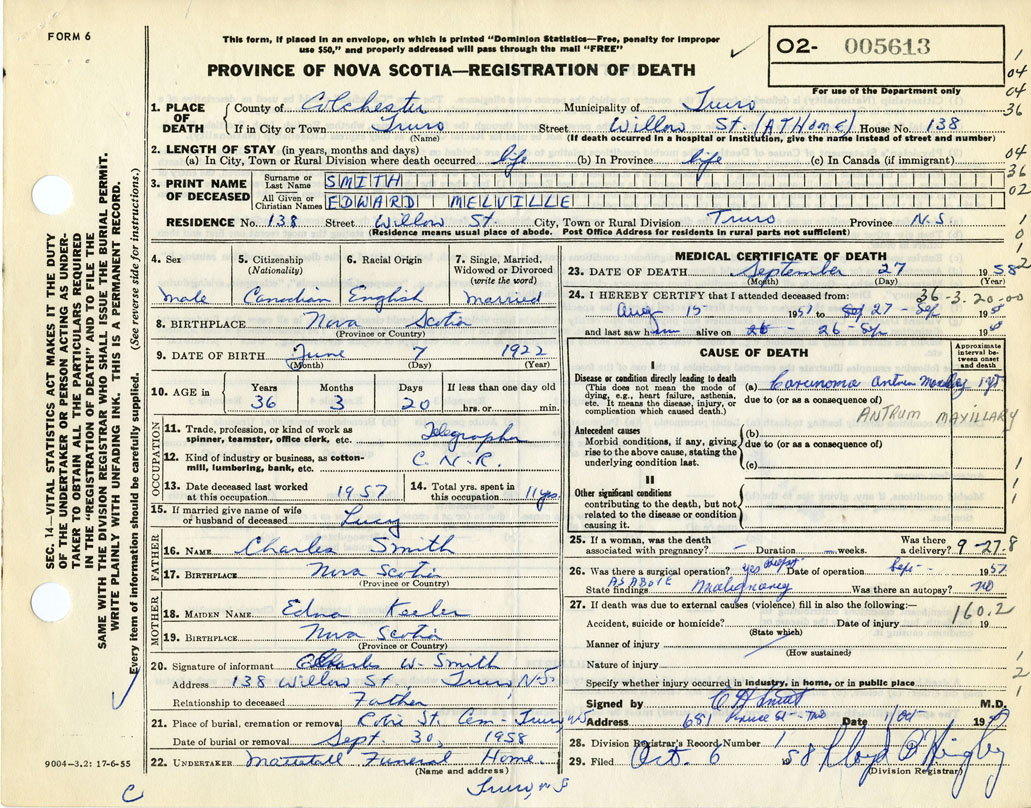 FORM 6
This form, if placed in an envelope, on which is printed "Dominion Statistics—Free, penalty for improper
use $50," and properly addressed will pass through the mail "FREE"
O2- 005613
For use of the Department only
PROVINCE OF NOVA SCOTIA—REGISTRATION OF DEATH
1. PLACE OF DEATH
County of Colchester Municipality of Truro
If in City or Town Truro Street Willow St. (AT HOME) House No. 138
(Name) (If death occurred in a hospital or institution, give the name instead of street and number)
2. LENGTH OF STAY (in years, months and days)
(a) In City, Town or Rural Division where death occurred life (b) In Province life (c) In Canada (if immigrant)
3. PRINT NAME OF DECEASED
Surname or Last Name SMITH
All Given or Christian Names EDWARD MELVILLE
RESIDENCE No. 138 Street Willow St. City, Town or Rural Division Truro Province N.S.
(Residence means usual place of abode. Post Office Address for residents in rural parts not sufficient)
4. Sex male
5. Citizenship (Nationality) Canadian
6. Racial Origin English
7. Single, Married, Widowed or Divorced (write the word) married
8. BIRTHPLACE Nova Scotia
(Province or Country)
9. DATE OF BIRTH June 7 1922
(Month) (Day) (Year)
10. AGE in Years 36 Months 3 Days 20 If less than one day old hrs. or min.
OCCUPATION
11. Trade, profession, or kind of work as spinner, teamster, office clerk, etc. Telegrapher
12. Kind of industry or business, as cotton-mill, lumbering, bank, etc. C.N.R.
13. Date deceased last worked at this occupation 1957
14. Total yrs. spent in this occupation 11 yrs.
15. If married give name of wife or husband of deceased Lucy
FATHER
16. NAME Charles Smith
17. BIRTHPLACE Nova Scotia
(Province or Country)
MOTHER
18. MAIDEN NAME Edna Keeler
19. BIRTHPLACE Nova Scotia
(Province or Country)
20. Signature of informant Charles W. Smith
Address 138 Willow St., Truro, N.S.
Relationship to deceased Father
21. Place of burial, cremation or removal Robie St. Cem - Truro, NS
Date of burial or removal Sept. 30, 1958
22. UNDERTAKER Mattatall Funeral Home.
(Name and address)
Truro, N S
MEDICAL CERTIFICATE OF DEATH
23. DATE OF DEATH September 27 1958
(Month) (Day) (Year)
24. I HEREBY CERTIFY that I attended deceased from: 36-3.20-00
Aug 15 1957 to 27 - Sep 1958
and last saw him alive on 26 - Sep 1958
CAUSE OF DEATH
Approximate interval between onset and death
I
Disease or condition directly leading to death
(This does not mean the mode of dying, e.g., heart failure, asthenia, etc. It means the disease, injury, or complication which caused death.)
(a) Carcinoma Antrum 1 yr
due to (or as a consequence of)
ANTRUM MAXILLARY
Antecedent causes
Morbid conditions, if any, giving rise to the above cause, stating the underlying condition last.
(b)
due to (or as a consequence of)
(c)
II
Other significant conditions
contributing to the death, but not related to the disease or condition causing it.
25. If a woman, was the death associated with pregnancy? - Duration weeks. Was there a delivery? 9-27.8
26. Was there a surgical operation? yes Biopsy Date of operation Sept - 1957
State findings AS ABOVE Malignancy Was there an autopsy? NO
27. If death was due to external causes (violence) fill in also the following:—
160.2
Accident, suicide or homicide? Date of injury 19
(State which)
Manner of injury
(How sustained)
Nature of injury
Specify whether injury occurred in industry, in home, or in public place
Signed by M.D.
Address 681 Prince St - Date 1 Oct 19
28. Division Registrar's Record Number
29. Filed Oct. 6 1958
(Division Registrar)
SEC. 14—VITAL STATISTICS ACT MAKES IT THE DUTY
OF THE UNDERTAKER OR PERSON ACTING AS UNDER-
TAKER TO OBTAIN ALL THE PARTICULARS REQUIRED
IN THE "REGISTRATION OF DEATH" AND TO FILE THE
SAME WITH THE DIVISION REGISTRAR WHO SHALL ISSUE THE BURIAL PERMIT.
WRITE PLAINLY WITH UNFADING INK. THIS IS A PERMANENT RECORD.
Every item of information should be carefully supplied. (See reverse side for instructions.)
9004-3.2: 17-6-55
C
1
04
04
36
04
36
02
1
0
1
2
1
1
1
1
2
1